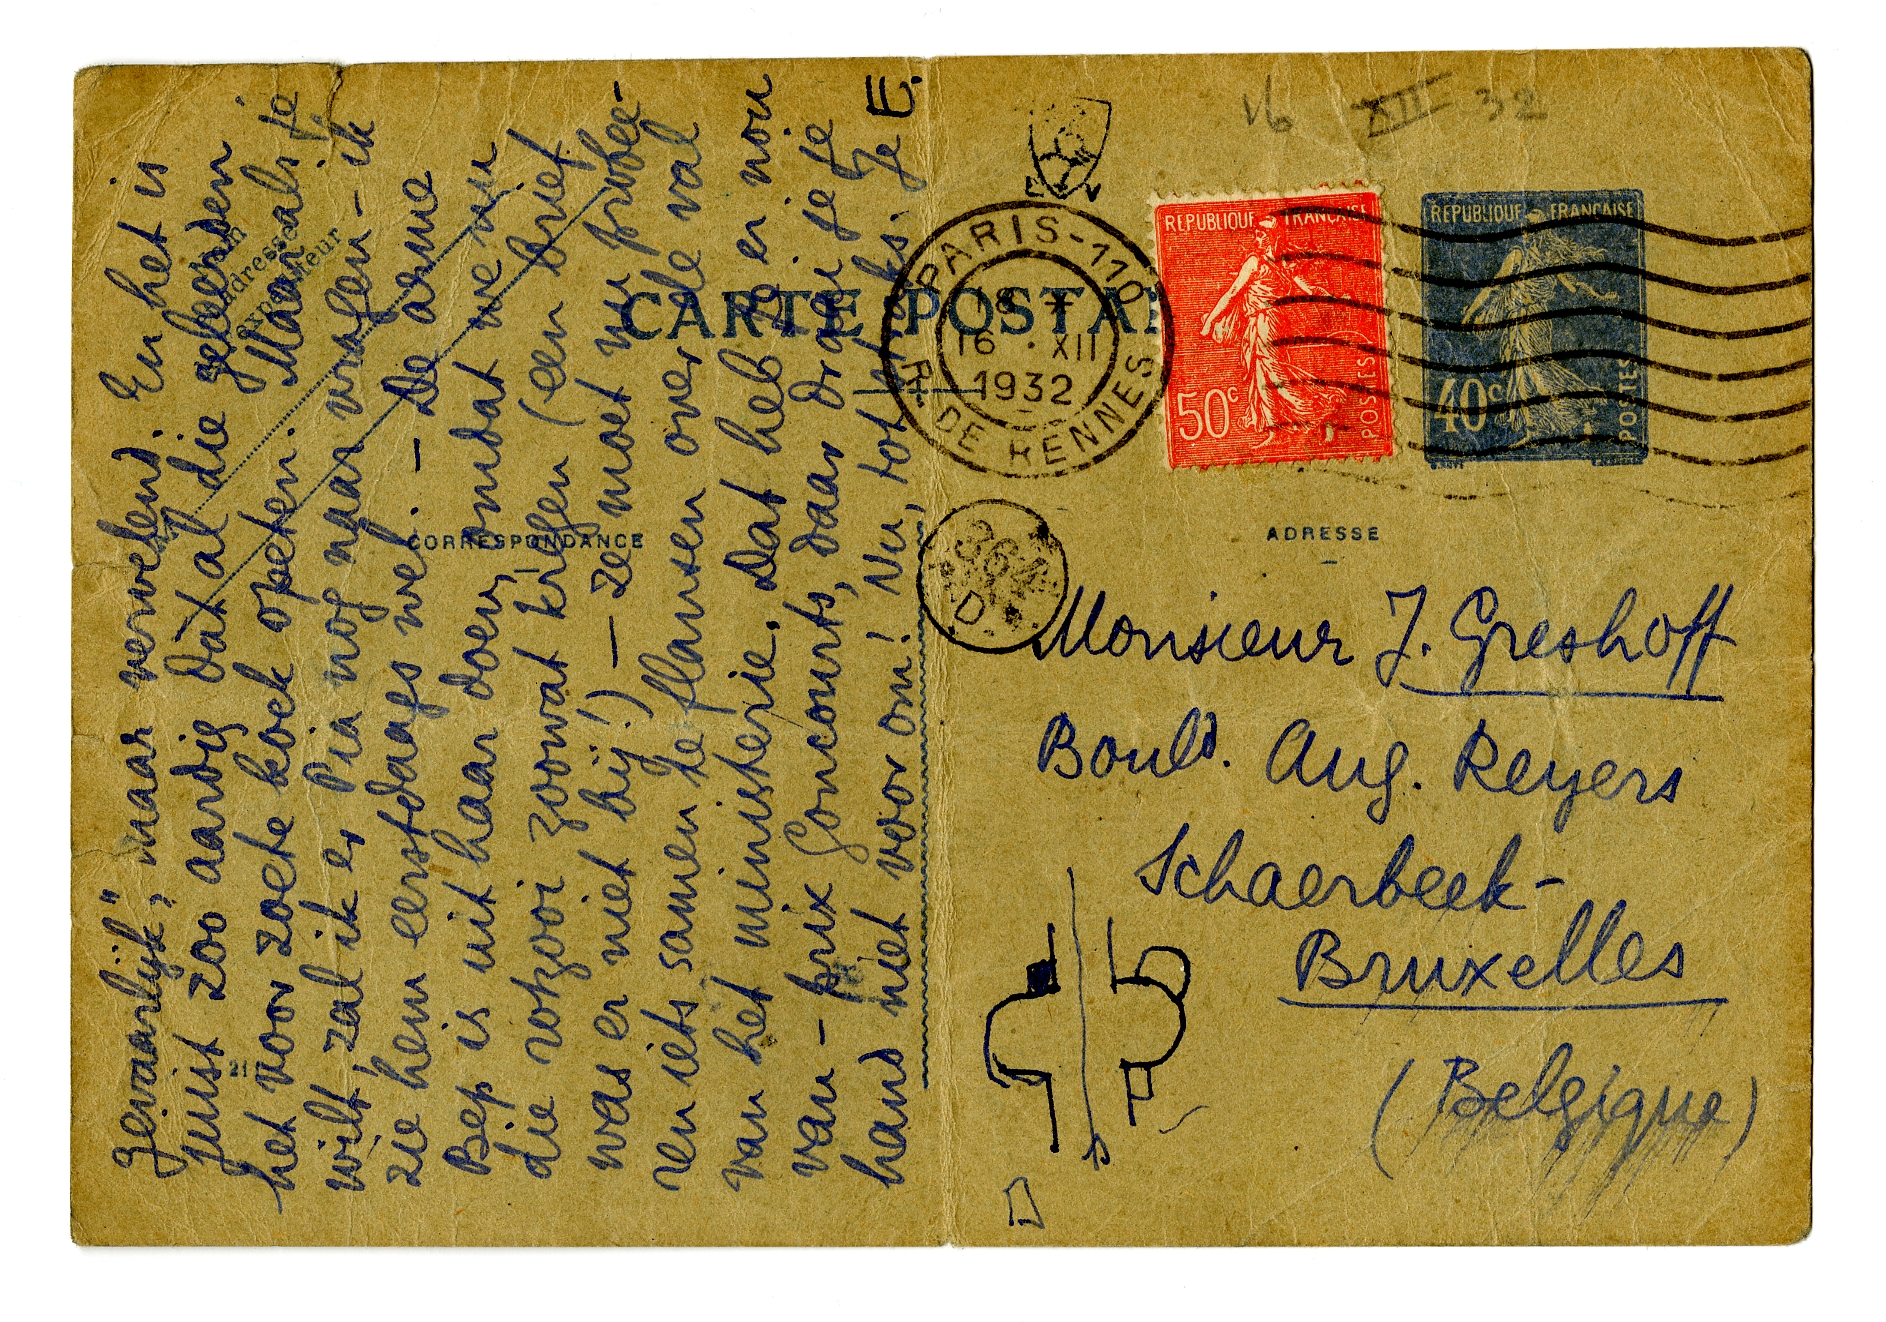 gevaarlijk", maar vervelend. En het is
juist zoo aardig dat al die geleerden
het voor zoete koek opeten. Maar als je
wilt, zal ik er Pia nog naar vragen - ik
zie hem eerstdaags wel. — De arme
Bep is uit haar doen, omdat we nu
die rotzooi zoowat krijgen (een brief
was er niet bij!) — ze moet nu probee-
ren iets samen te flansen over de val
van het ministerie. Dat heb je er nou
van - prix Goncourts, daar draai je je
hand niet voor om! Nu, tot straks. Je E.
16 XII 32
CARTE POSTALE
PARIS-110
R. DE RENNES
18
16 . XII
1932
REPUBLIQUE FRANÇAISE
50c
POSTES
REPUBLIQUE FRANÇAISE
40c
POSTES
CORRESPONDANCE
ADRESSE
expéditeur
364
D
Monsieur J. Greshoff
Bould. Aug. Reyers
Schaerbeek-
Bruxelles
(Belgique)